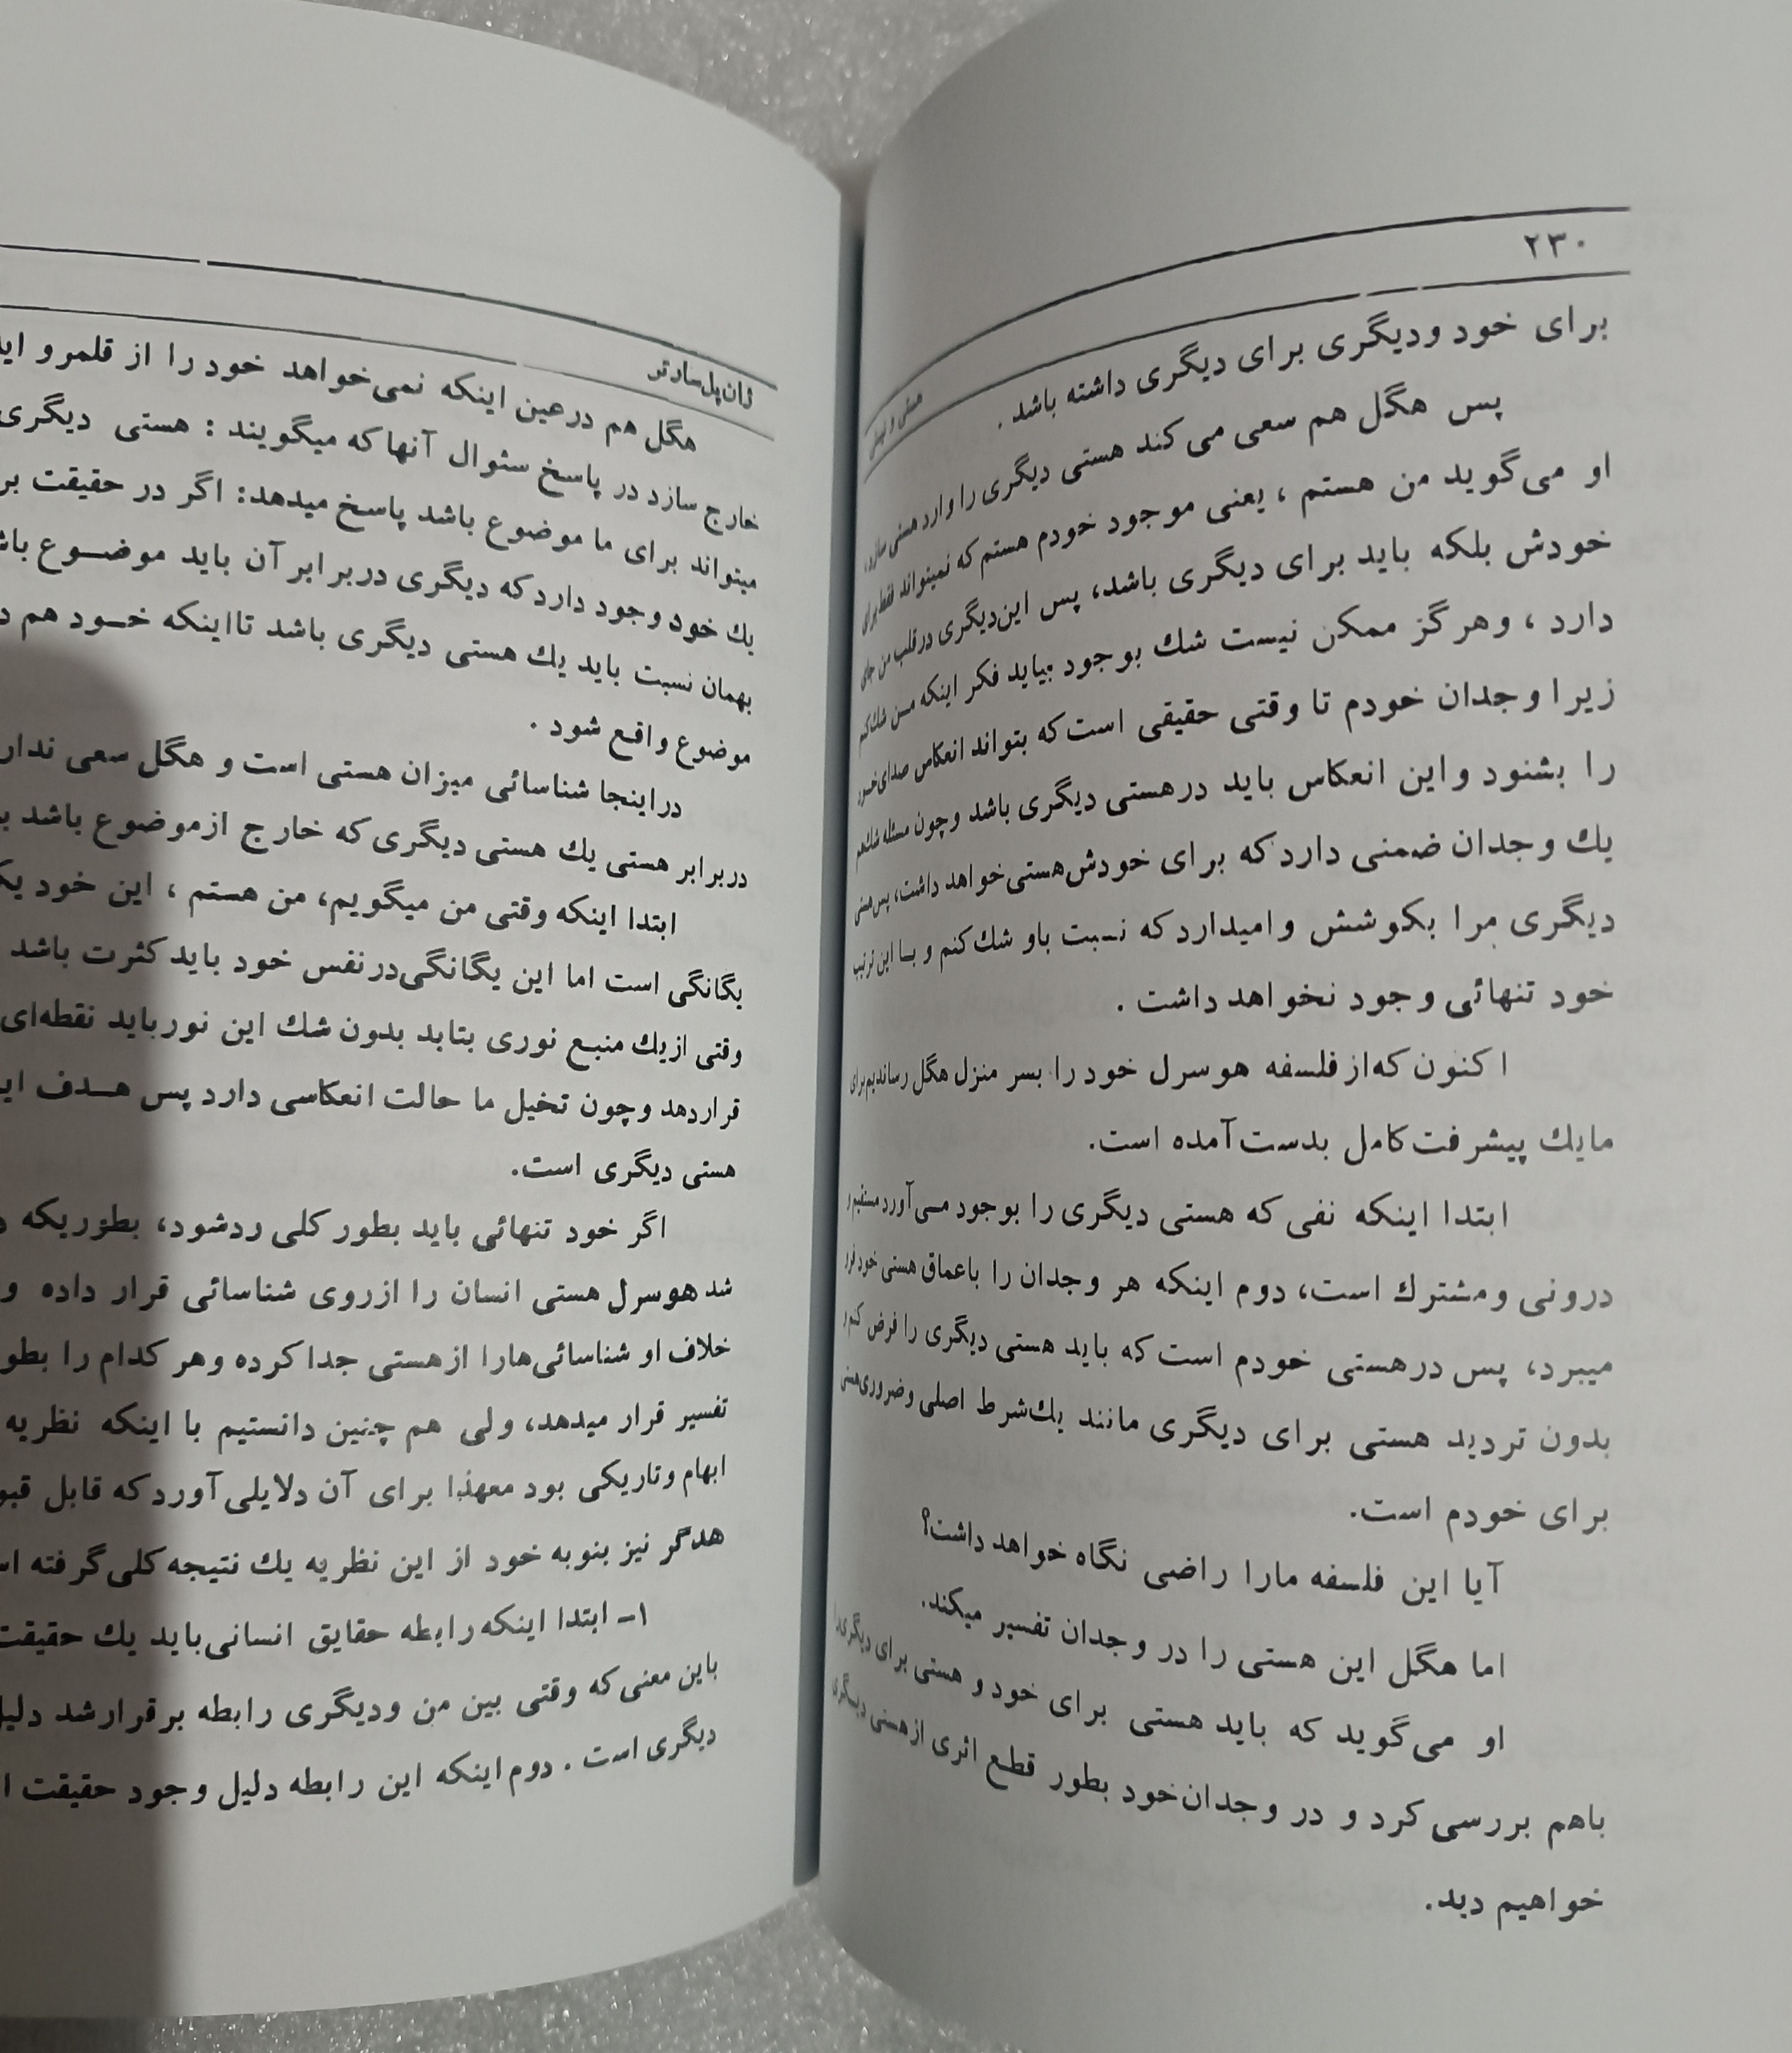 ۲۳۰
هستی و نیستی
برای خود ودیگری برای دیگری داشته باشد .
پس هگل هم سعی می کند هستی دیگری را وارد هستی سازد،
او می‌گوید من هستم ، یعنی موجود خودم هستم که نمیتواند فقط برای
خودش بلکه باید برای دیگری باشد، پس این‌دیگری در قلب من جای
دارد ، وهرگز ممکن نیست شك بوجود بیاید فکر اینکه من شك کنم
زیرا وجدان خودم تا وقتی حقیقی است که بتواند انعکاس صدای خود
را بشنود واین انعکاس باید درهستی دیگری باشد وچون مسئله شك هم
یك وجدان ضمنی دارد که برای خودش هستی خواهد داشت، پس هستی
دیگری مرا بکوشش وامیدارد که نسبت باو شك کنم و بسا این ترتیب
خود تنهائی وجود نخواهد داشت .
اکنون که از فلسفه هوسرل خود را بسر منزل هگل رساندیم برای
ما یك پیشرفت کامل بدست آمده است.
ابتدا اینکه نفی که هستی دیگری را بوجود مـی‌آورد مستقیم و
درونی ومشترك است، دوم اینکه هر وجدان را باعماق هستی خود فرو
میبرد، پس درهستی خودم است که باید هستی دیگری را فرض کنم و
بدون تردید هستی برای دیگری مانند یك شرط اصلی وضروری هستی
برای خودم است.
آیا این فلسفه مارا راضی نگاه خواهد داشت؟
اما هگل این هستی را در وجدان تفسیر میکند.
او می‌گوید که باید هستی برای خود و هستی برای دیگری را
باهم بررسی کرد و در وجدان خود بطور قطع اثری از هستی دیـگری
خواهیم دید.
ژان پل سارتر
هگل هم درعین اینکه نمی‌خواهد خود را از قلمرو
خارج سازد در پاسخ سئوال آنها که میگویند : هستی دیگری
میتواند برای ما موضوع باشد پاسخ میدهد: اگر در حقیقت
یك خود وجود دارد که دیگری دربرابر آن باید موضـوع
بهمان نسبت باید یك هستی دیگری باشد تااینکه خـود هم
موضوع واقع شود .
دراینجا شناسائی میزان هستی است و هگل سعی
دربرابر هستی یك هستی دیگری که خارج ازموضوع باشد
ابتدا اینکه وقتی من میگویم، من هستم ، این خود
یگانگی است اما این یگانگی‌در نفس خود باید کثرت باشد
وقتی از یك منبع نوری بتابد بدون شك این نور باید نقطه‌ای
قرار دهد وچون تخیل ما حالت انعکاسی دارد پس هـدف
هستی دیگری است.
اگر خود تنهائی باید بطور کلی ردشود، بطوریکه
شد هوسرل هستی انسان را ازروی شناسائی قرار داده و
خلاف او شناسائی‌هارا ازهستی جدا کرده وهر کدام را
تفسیر قرار میدهد، ولی هم چنین دانستیم با اینکه نظریه
ابهام وتاریکی بود معهذا برای آن دلایلی آورد که قابل
هدگر نیز بنوبه خود از این نظریه یك نتیجه کلی گرفته
۱ـ ابتدا اینکه رابطه حقایق انسانی باید یك حقیقت
باین معنی که وقتی بین من ودیگری رابطه برقرارشد
دیگری است . دوم اینکه این رابطه دلیل وجود حقیقت